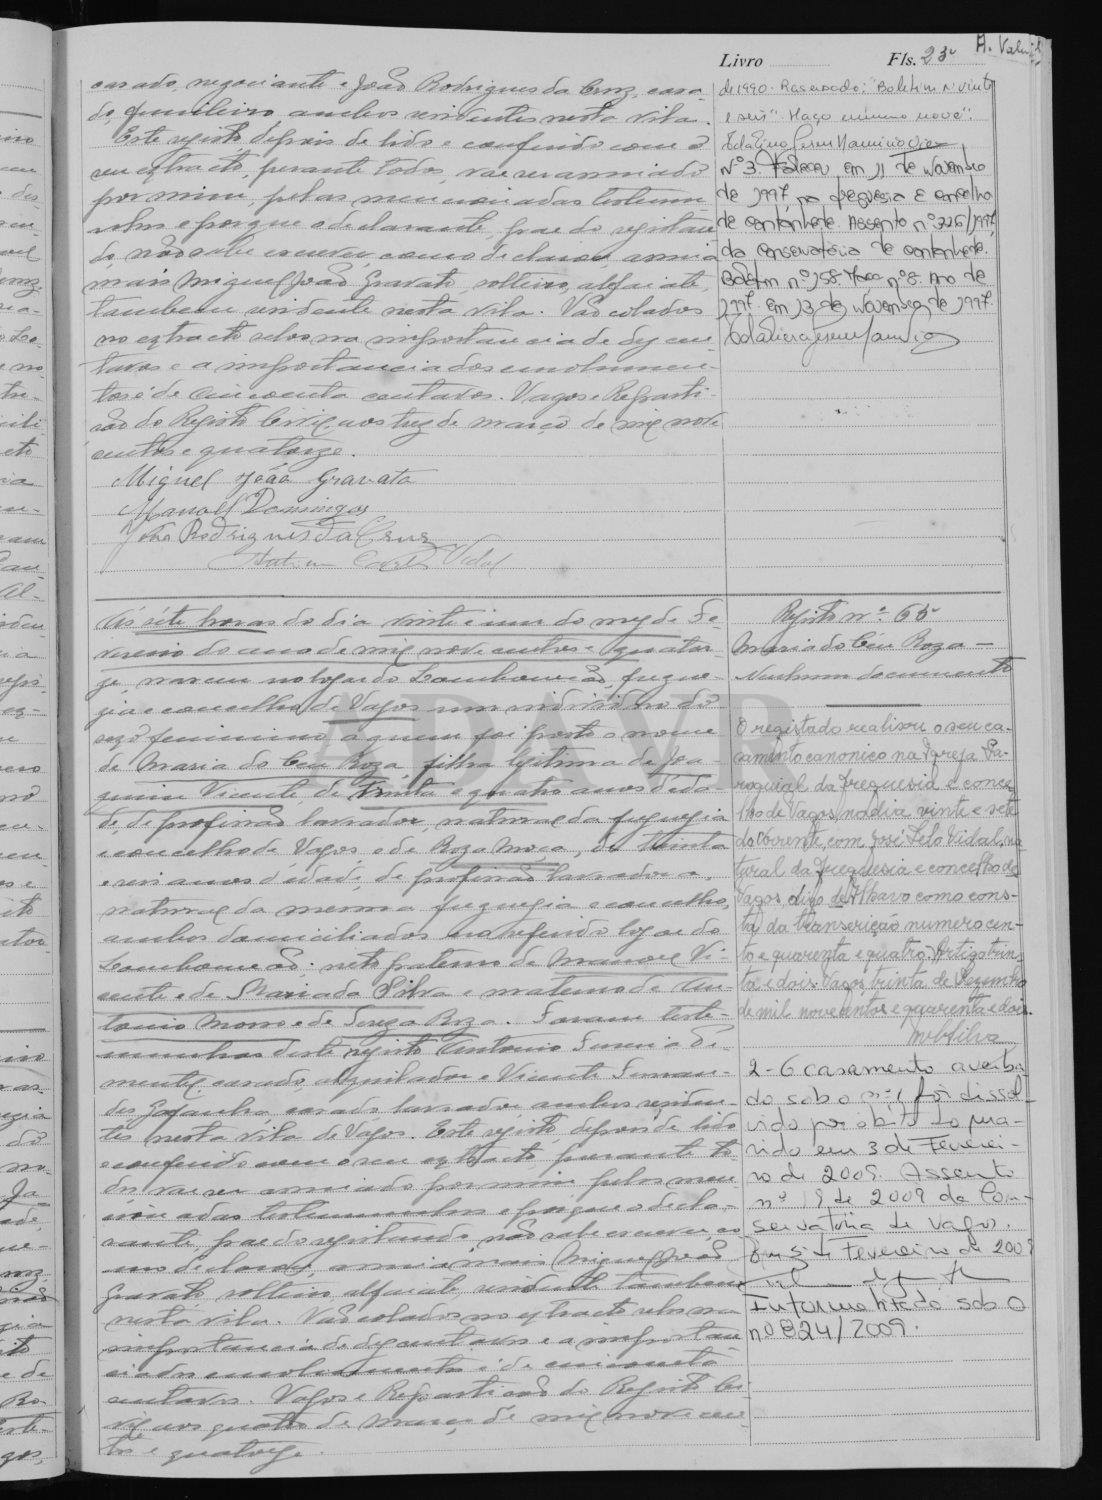 Livro Fls. 23v
casado, negociante e João Rodrigues da Cruz, casa-
do, ambos residentes nesta vila.
Este registo, depois de lido e conferido com o
seu extracto, perante todos, vae ser assinado
por mim, pelas mencionadas testemu-
nhas e porque o declarante, pae do registan-
do, não sabe escrever, como declarou, assina
mais Miguel João Gravato, solteiro, alfaiate,
tambem residente nesta vila. Vão colados
no extracto selos na importancia de dez cen-
tavos e a importancia dos emolumen-
tos é de cincoenta centavos. Vagos e Reparti-
ção do Registo Civil, aos treze de março de mil nove
centos e quatorze.
Miguel João Gravato
Manoel Domingos
João Rodrigues da Cruz
Vidal
de 1990. Rasurado: "Boletim nº vinte
e seis" "Maço número nove".
Nº 3. Faleceu em 11 de Novembro
de 1997, na freguesia e concelho
de Cantanhede. Assento nº 326/1997,
da Conservatória de Cantanhede.
Boletim nº 158. Maço nº 8. Ano de
1997. Em 13 de Novembro de 1997.
Ás sete horas do dia vinte e um do mez de Fe-
vereiro do ano de mil nove centos e quator-
ze, nasceu no logar do Lombomeão, fregue-
zia e concelho de Vagos um individuo do
sexo feminino, a quem foi posto o nome
de Maria do Ceu Roza, filha legitima de Joa-
quim Vicente de trinta e quatro anos d'ida-
de, de profissão lavrador, natural da freguezia
e concelho de Vagos, e de Roza Moça, de trinta
e seis anos d'idade, de profissão lavradora,
natural da mesma freguezia e concelho,
ambos domiciliados no referido logar do
Lombomeão; neta paterna de Manoel Vi-
cente e de Maria da Silva e materna de An-
tonio Morro e de Tereza Roza. Foram teste-
munhas deste registo Antonio
casado, alquilador e Vicente Fernan-
des casado lavrador, ambos residen-
tes nesta vila de Vagos. Este registo, depois de lido
e conferido com o seu extracto, perante to-
dos, vae ser assinado por mim, pelas men-
cionadas testemunhas e porque o decla-
rante, pae do registando, não sabe escrever, co-
mo declarou, assina mais Miguel João
Gravato, solteiro, alfaiate, residente tambem
nesta vila. Vão colados no extracto selos na
importancia de dez centavos e a importan-
cia dos emolumentos é de cincoenta
centavos. Vagos e Repartição do Registo Ci-
vil, aos quatro de março de mil nove cen-
tos e quatorze.
Registo nº 65
Maria do Céu Roza —
Nenhum documento
O registado realisou o seu ca-
samento canonico na Igreja Pa-
roquial da freguesia e conce-
lho de Vagos, no dia vinte e sete
do corrente, com José Vidal, na-
tural da freguesia e concelho de
Vagos, digo de Ilhavo como cons-
ta da transcrição numero cen-
to e quarenta e quatro. Artigo trin-
ta e dois. Vagos, trinta de Dezembro
de mil novecentos e quarenta e dois.
2 - O casamento averba-
do sob o nº 1 foi dissol-
vido por obito do ma-
rido em 3 de Feverei-
ro de 2009. Assento
nº 19 de 2009 da Con-
servatória de Vagos.
Em 5 de Fevereiro de 2009
Informatizado sob o
nº 824/2009.
ADAVR